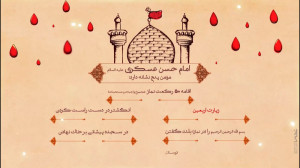 امام حسن عسکری علیه السلام
مومن پنج نشانه دارد:
اقامه ۵۱ رکعت نماز
زیارت اربعین
انگشتر در دست راست کردن
بسم الله الرحمن الرحیم را در نماز بلند گفتن
در سجده پیشانی بر خاک نهادن